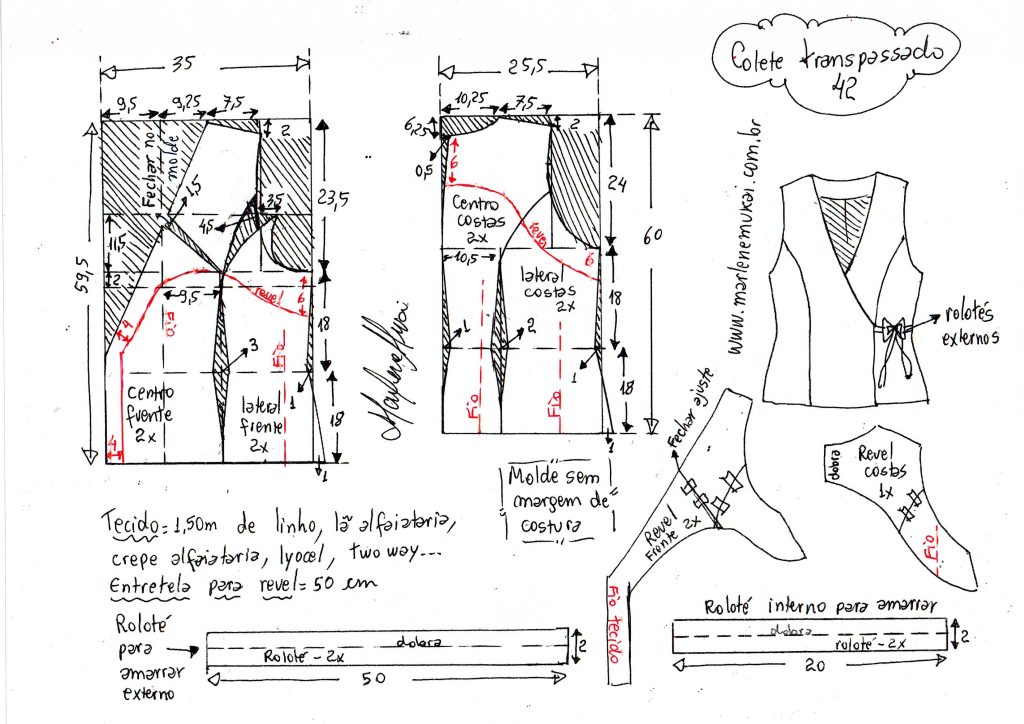 Colete transpassado
42
www.marlenemukai.com.br
35
9,5
9,25
7,5
2
Fechar no
molde
1,5
4,5
3,5
23,5
59,5
11,5
2
9,5
4
Fio
revel
6
18
Fio
3
centro
frente
2x
lateral
frente
2x
1
18
4
1
25,5
10,25
7,5
6,25
2
0,5
6
24
centro
costas
2x
revel
60
10,5
6
lateral
costas
2x
18
1
2
1
18
Fio
Fio
1
Marlene Mukai
rolotés
externos
Molde sem
margem de
costura
Fechar ajuste
Revel
Frente 2x
Fio tecido
dobra
Revel
costas
1x
Fio
Tecido= 1,50m de linho, lã alfaiataria,
crepe alfaiataria, lyocel, two way...
Entretela para revel= 50 cm
Roloté
para
amarrar
externo
dobra
Roloté - 2x
2
50
Roloté interno para amarrar
dobra
roloté - 2x
2
20